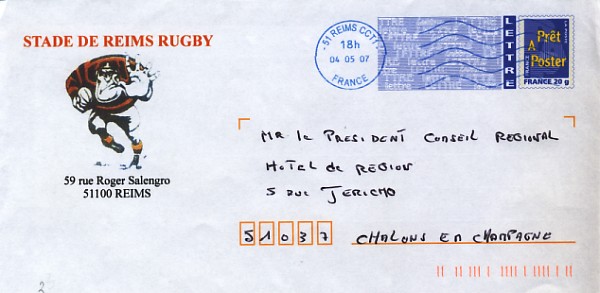 STADE DE REIMS RUGBY
59 rue Roger Salengro
51100 REIMS
51 REIMS CCT1
18h
04 05 07
FRANCE
LETTRE
Prêt
A
Poster
FRANCE 20 g
MR le PRÉSIDENT CONSEIL REGIONAL
HOTEL de REGION
5 rue JERICHO
51037 CHALONS EN CHAMPAGNE
2